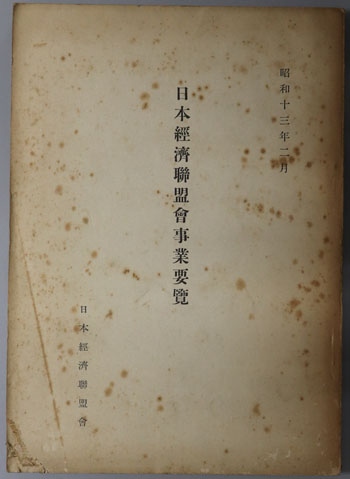 昭和十三年二月
日本經濟聯盟會事業要覽
日本經濟聯盟會